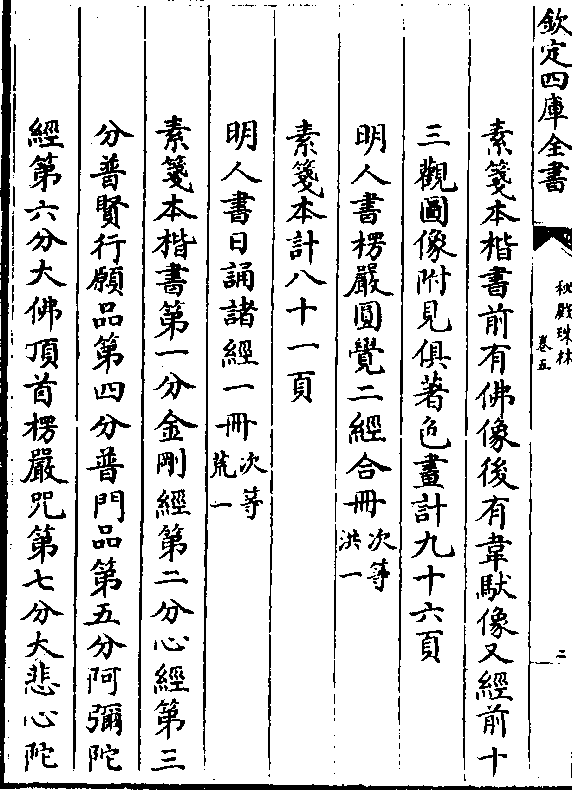 欽定四庫全書
秘殿珠林
卷五
二
素箋本楷書前有佛像後有韋馱像又經前十
三觀圖像附見俱著色畫計九十六頁
明人書楞嚴圓覺二經合冊次等洪一
素箋本計八十一頁
明人書日誦諸經一冊次等荒一
素箋本楷書第一分金剛經第二分心經第三
分普賢行願品第四分普門品第五分阿彌陀
經第六分大佛頂首楞嚴咒第七分大悲心陀